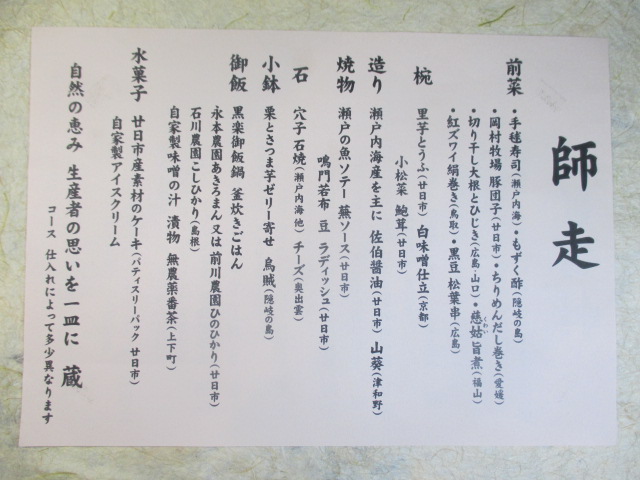 師走
前菜 ・手毬寿司(瀬戸内海)・もずく酢(隠岐の島)
・岡村牧場 豚団子(廿日市)・ちりめんだし巻き(愛媛)
・切り干し大根とひじき(広島・山口)・慈姑旨煮(福山)
くわい
・紅ズワイ絹巻き(鳥取)・黒豆 松葉串(広島)
椀 里芋とうふ(廿日市) 白味噌仕立(京都)
小松菜 鮑茸(廿日市)
造り 瀬戸内海産を主に 佐伯醤油(廿日市) 山葵(津和野)
焼物 瀬戸の魚ソテー 蕪ソース(廿日市)
鳴門若布 豆 ラディッシュ(廿日市)
石 穴子 石焼(瀬戸内海 他) チーズ(奥出雲)
小鉢 栗とさつま芋ゼリー寄せ 烏賊(隠岐の島)
御飯 黒楽御飯鍋 釜炊きごはん
永本農園あきろまん又は 前川農園ひのひかり(廿日市)
石川農園こしひかり(島根)
自家製味噌の汁 漬物 無農薬番茶(上下町)
水菓子 廿日市産素材のケーキ(パティスリーパック 廿日市)
自家製アイスクリーム
自然の恵み 生産者の思いを一皿に 蔵
コース 仕入れによって多少異なります